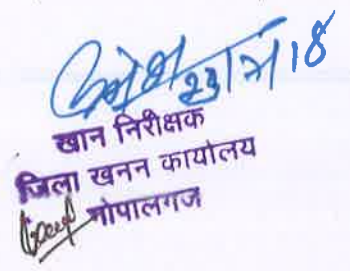 23/ /18
खान निरीक्षक
जिला खनन कार्यालय
गोपालगंज